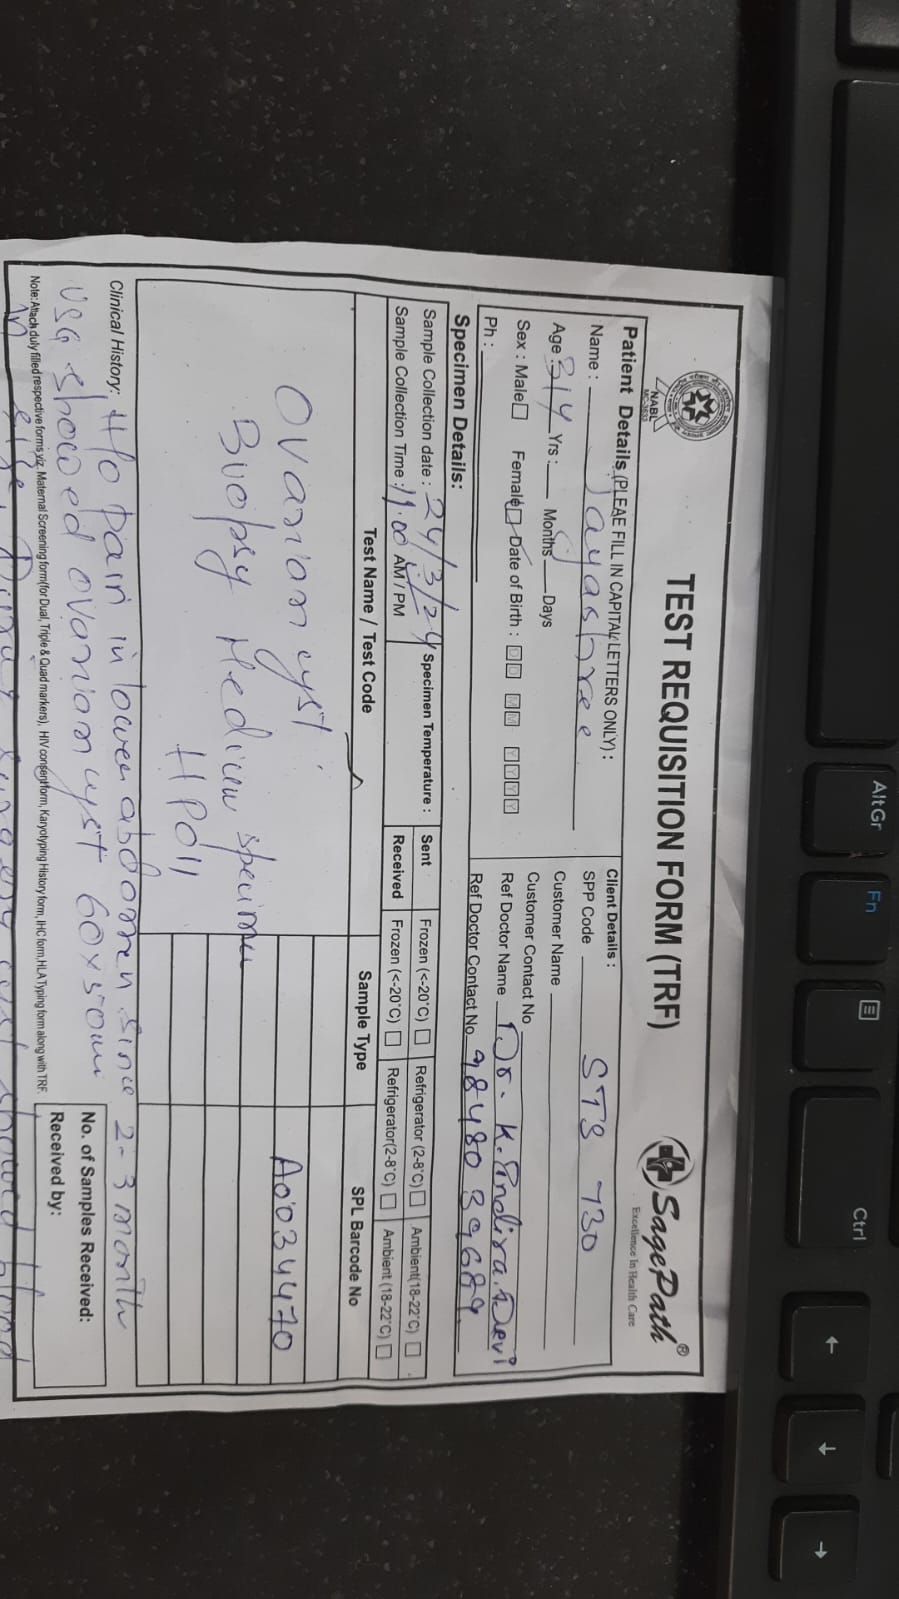 TEST REQUISITION FORM (TRF)
NABL
SagePath®
Excellence In Health Care
Patient Details (PLEAE FILL IN CAPITAL LETTERS ONLY) :
Name : Jayashree
Age : 31Y Yrs : Months Days
Sex : Male Female Date of Birth : D D M M Y Y Y Y
Ph :
Client Details :
SPP Code STS 730
Customer Name
Customer Contact No
Ref Doctor Name Dr. K. Indira Devi
Ref Doctor Contact No 98480 39689
Specimen Details:
Sample Collection date : 24/3/24
Sample Collection Time : 11.00 AM / PM
Specimen Temperature :
Sent Frozen (<-20°C) Refrigerator (2-8°C) Ambient(18-22°C)
Received Frozen (<-20°C) Refrigerator(2-8°C) Ambient (18-22°C)
Test Name / Test Code Sample Type SPL Barcode No
Ovarian cyst A0034470
Biopsy Medium
HP011
Clinical History: H/o pain in lower abdomen since 2-3 month
USG showed ovarian cyst 60x50mm
in size. During surgery cyst showed blood
Note: Attach duly filled respective forms viz. Maternal Screening form(for Dual, Triple & Quad markers), HIV consent form, Karyotyping History form, IHC form, HLA Typing form along with TRF.
No. of Samples Received:
Received by:
AltGr
Fn
Ctrl